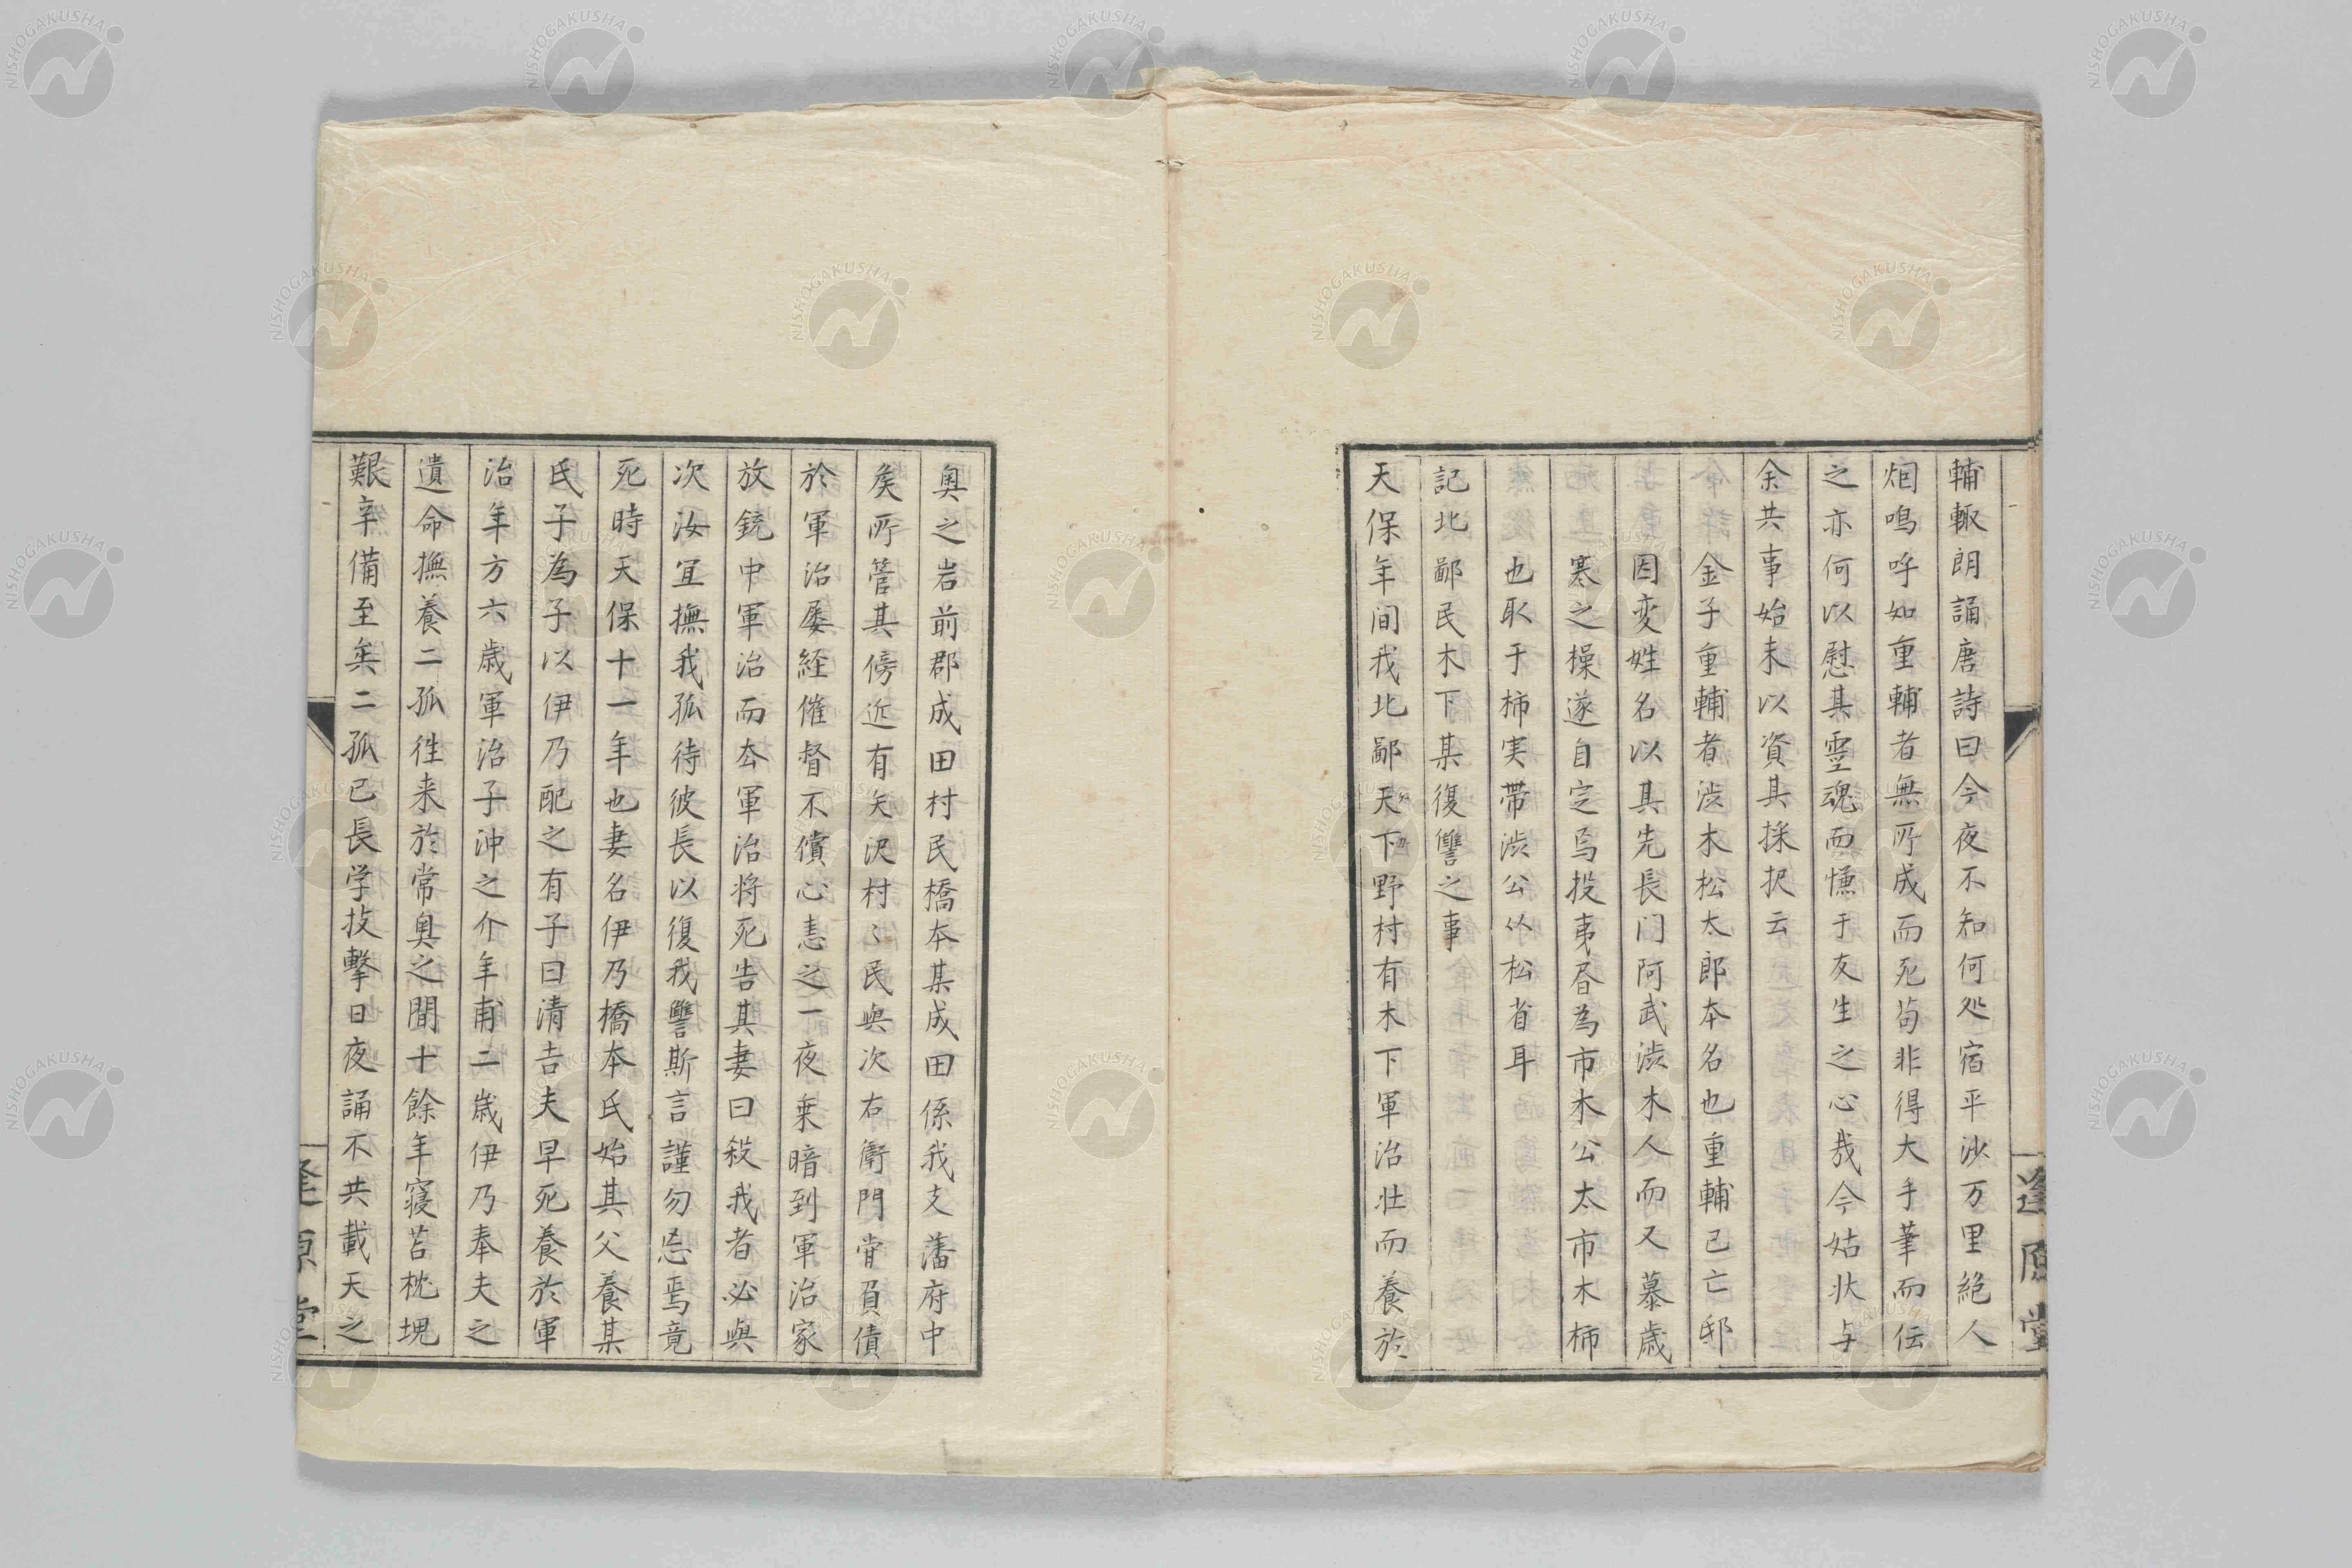 輔輙朗誦唐詩曰今夜不知何処宿平沙万里絶人
烟嗚呼如重輔者無所成而死苟非得大手筆而伝
之亦何以慰其霊魂而慊于友生之心哉今姑状与
余共事始末以資其採択云
金子重輔者渋木松太郎本名也重輔已亡邸
因変姓名以其先長门阿武渋木人而又慕歳
寒之操遂自定焉投夷昏為市木公太市木柿
也取于柿実帯渋公从松省耳
記北鄙民木下某復讐之事
天保年间我北鄙天下野村有木下軍治壮而養於
奥之岩前郡成田村民橋本某成田係我支藩府中
矦所管其傍近有矢沢村〻民與次右衛門甞負債
於軍治屡経催督不償心恚之一夜乗暗到軍治家
放銃中軍治而夲軍治将死告其妻曰殺我者必與
次汝宜撫我孤待彼長以復我讐斯言謹勿忘焉竟
死時天保十一年也妻名伊乃橋本氏始其父養某
氏子為子以伊乃配之有子曰清吉夫早死養於軍
治年方六歳軍治子沖之介年甫二歳伊乃奉夫之
遺命撫養二孤徃来於常奥之間十餘年寝苫枕塊
艱辛備至矣二孤已長学技撃日夜誦不共載天之
逢原堂
逢原堂
NISHOGAKUSHA